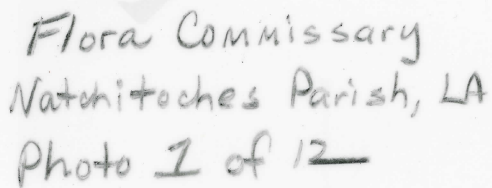 Flora Commissary
Natchitoches Parish, LA
Photo 1 of 12